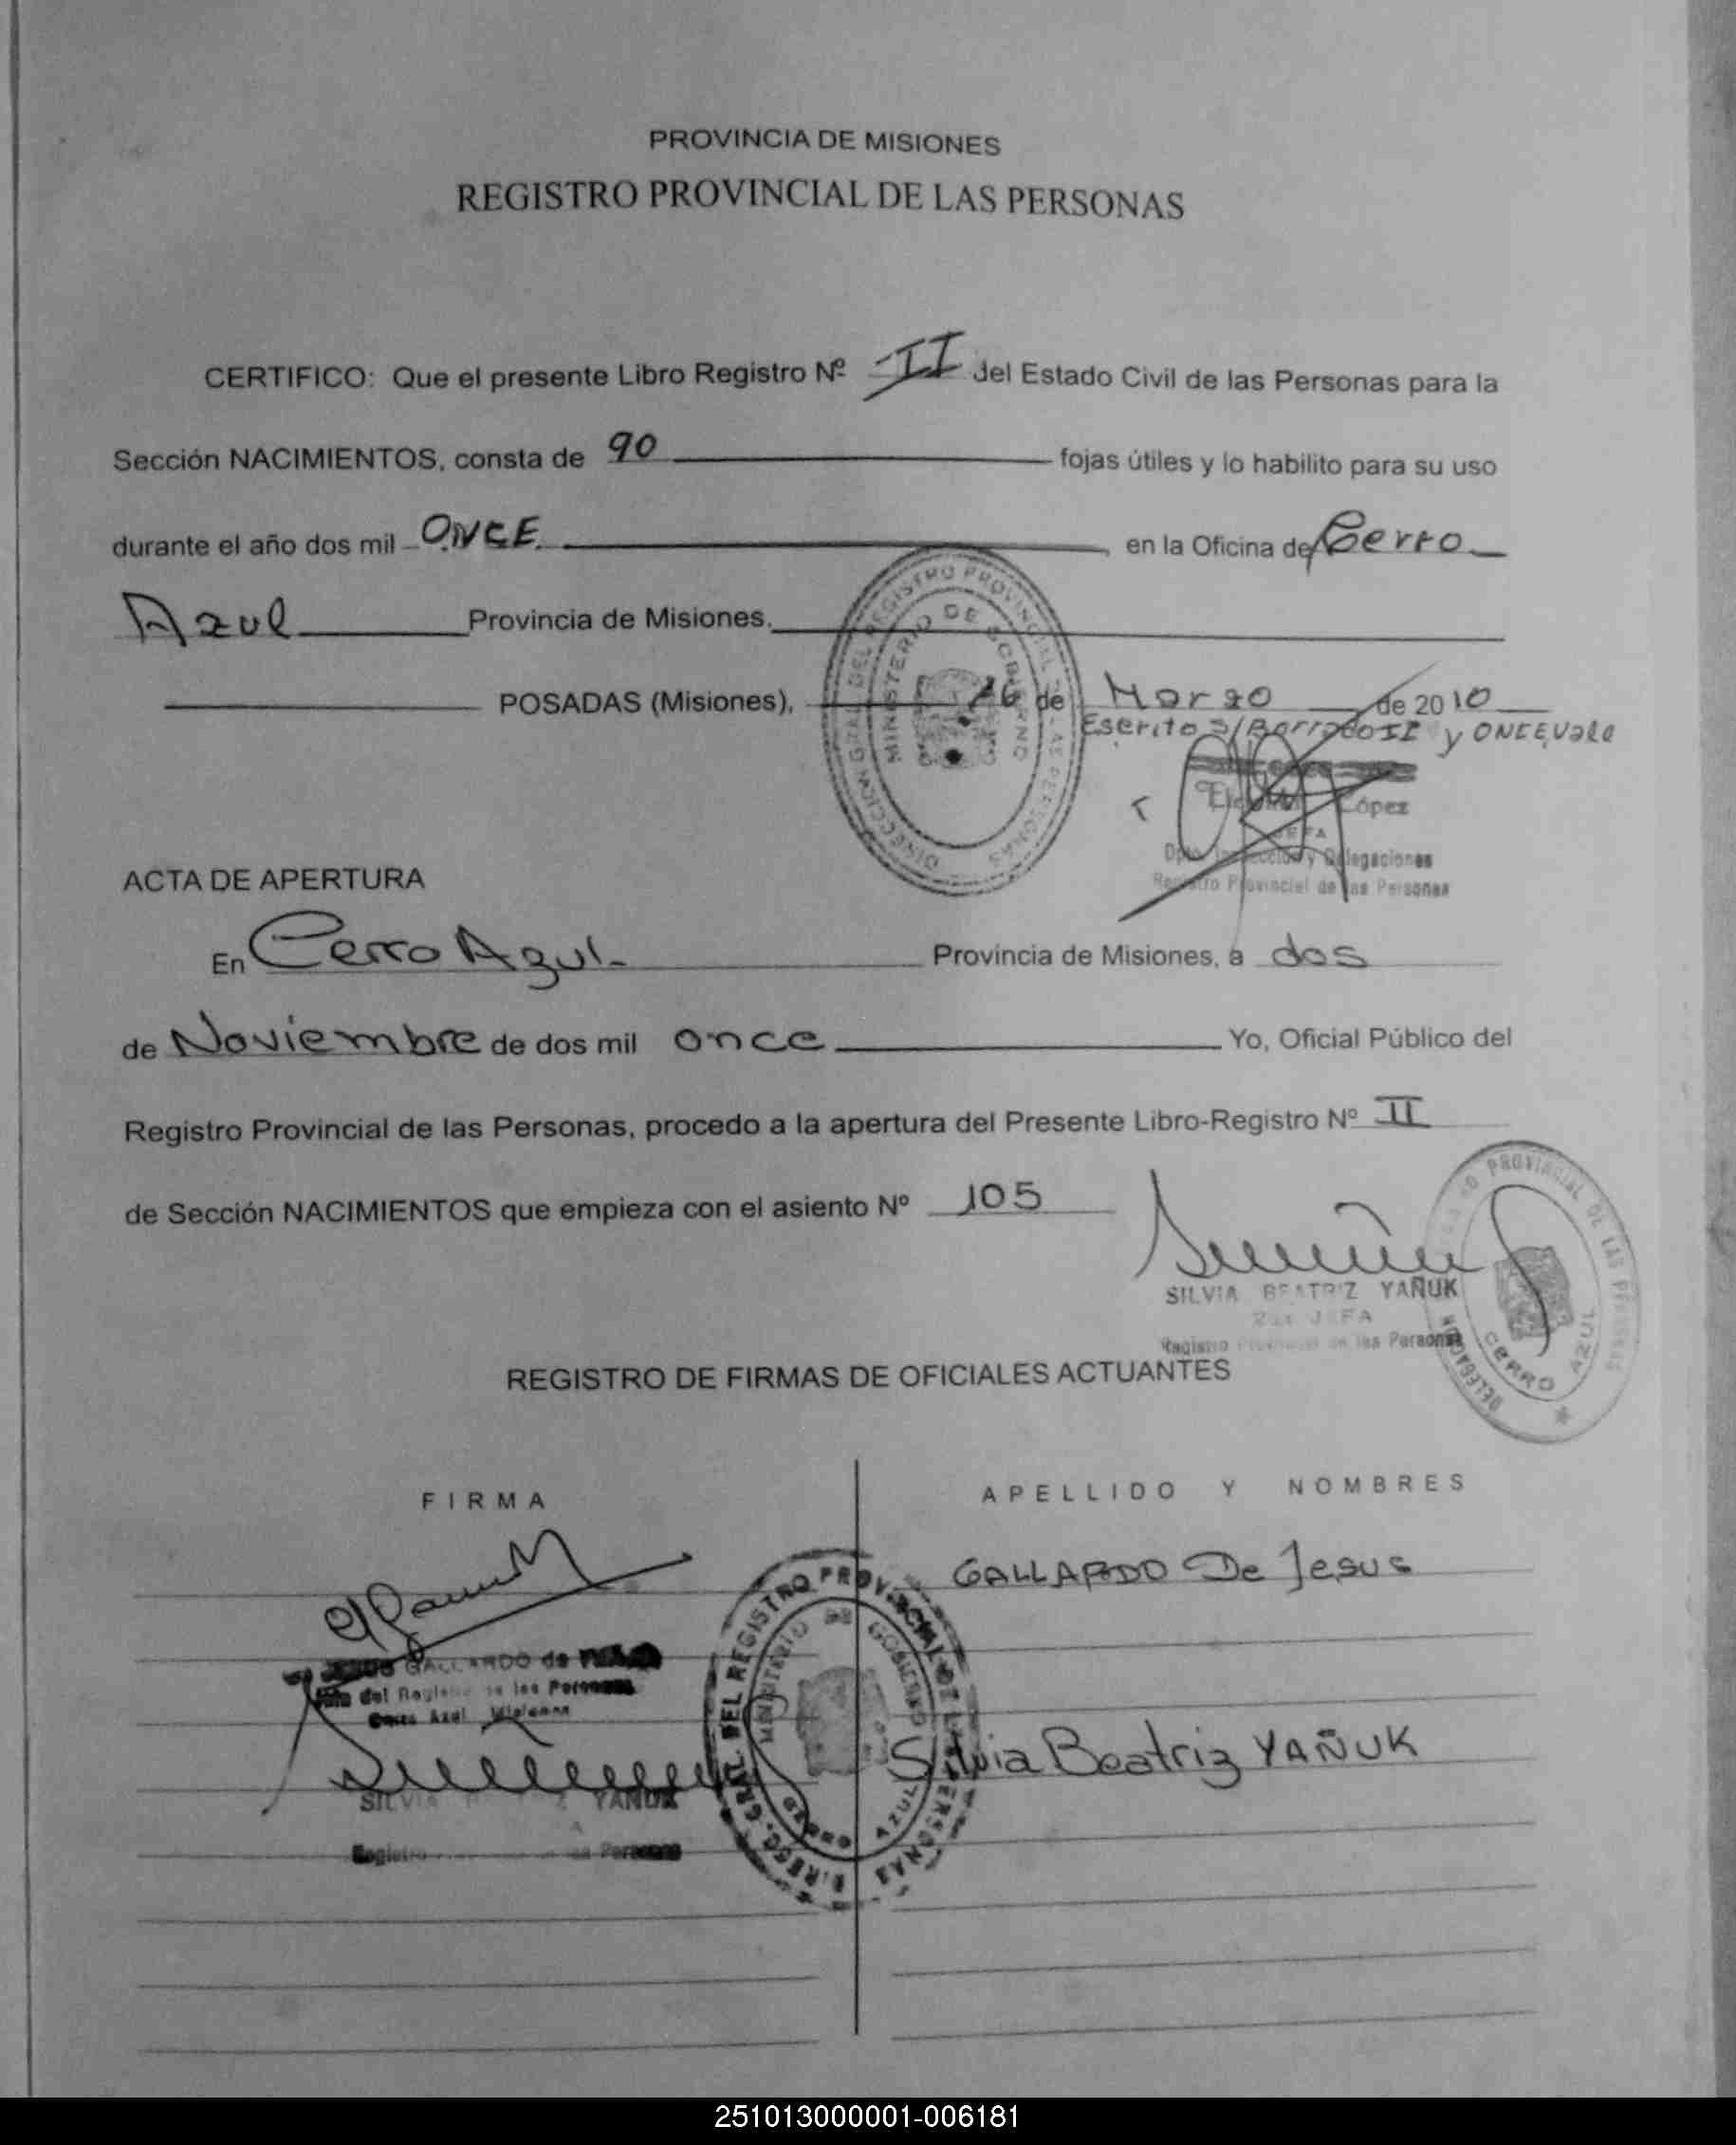 PROVINCIA DE MISIONES
REGISTRO PROVINCIAL DE LAS PERSONAS
CERTIFICO: Que el presente Libro Registro Nº II del Estado Civil de las Personas para la
Sección NACIMIENTOS, consta de 90 fojas útiles y lo habilito para su uso
durante el año dos mil ONCE, en la Oficina de Cerro
Azul Provincia de Misiones.
POSADAS (Misiones), 26 de Marzo de 2010
Escrito S/Borrado II y ONCE, Vale
López
JEFA
Dpto. Inspección y Delegaciones
Registro Provincial de las Personas
DIRECCION GRAL. DEL REGISTRO PROVINCIAL DE LAS PERSONAS
MINISTERIO DE GOBIERNO
ACTA DE APERTURA
En Cerro Azul Provincia de Misiones, a dos
de Noviembre de dos mil once Yo, Oficial Público del
Registro Provincial de las Personas, procedo a la apertura del Presente Libro-Registro Nº II
de Sección NACIMIENTOS que empieza con el asiento Nº 105
SILVIA BEATRIZ YAÑUK
JEFA
Registro Provincial de las Personas
PROVINCIAL DE LAS PERSONAS
DELEGACION
CERRO AZUL
REGISTRO DE FIRMAS DE OFICIALES ACTUANTES
FIRMA APELLIDO Y NOMBRES
GALLARDO De Jesus
GALLARDO de
del Registro de las Personas
Cerro Azul Misiones
Silvia Beatriz YAÑUK
SILVIA YAÑUK
Registro Personas
DIRECC. GRAL. DEL REGISTRO PROVINCIAL DE LAS PERSONAS
MINISTERIO DE GOBIERNO
CERRO AZUL
251013000001-006181